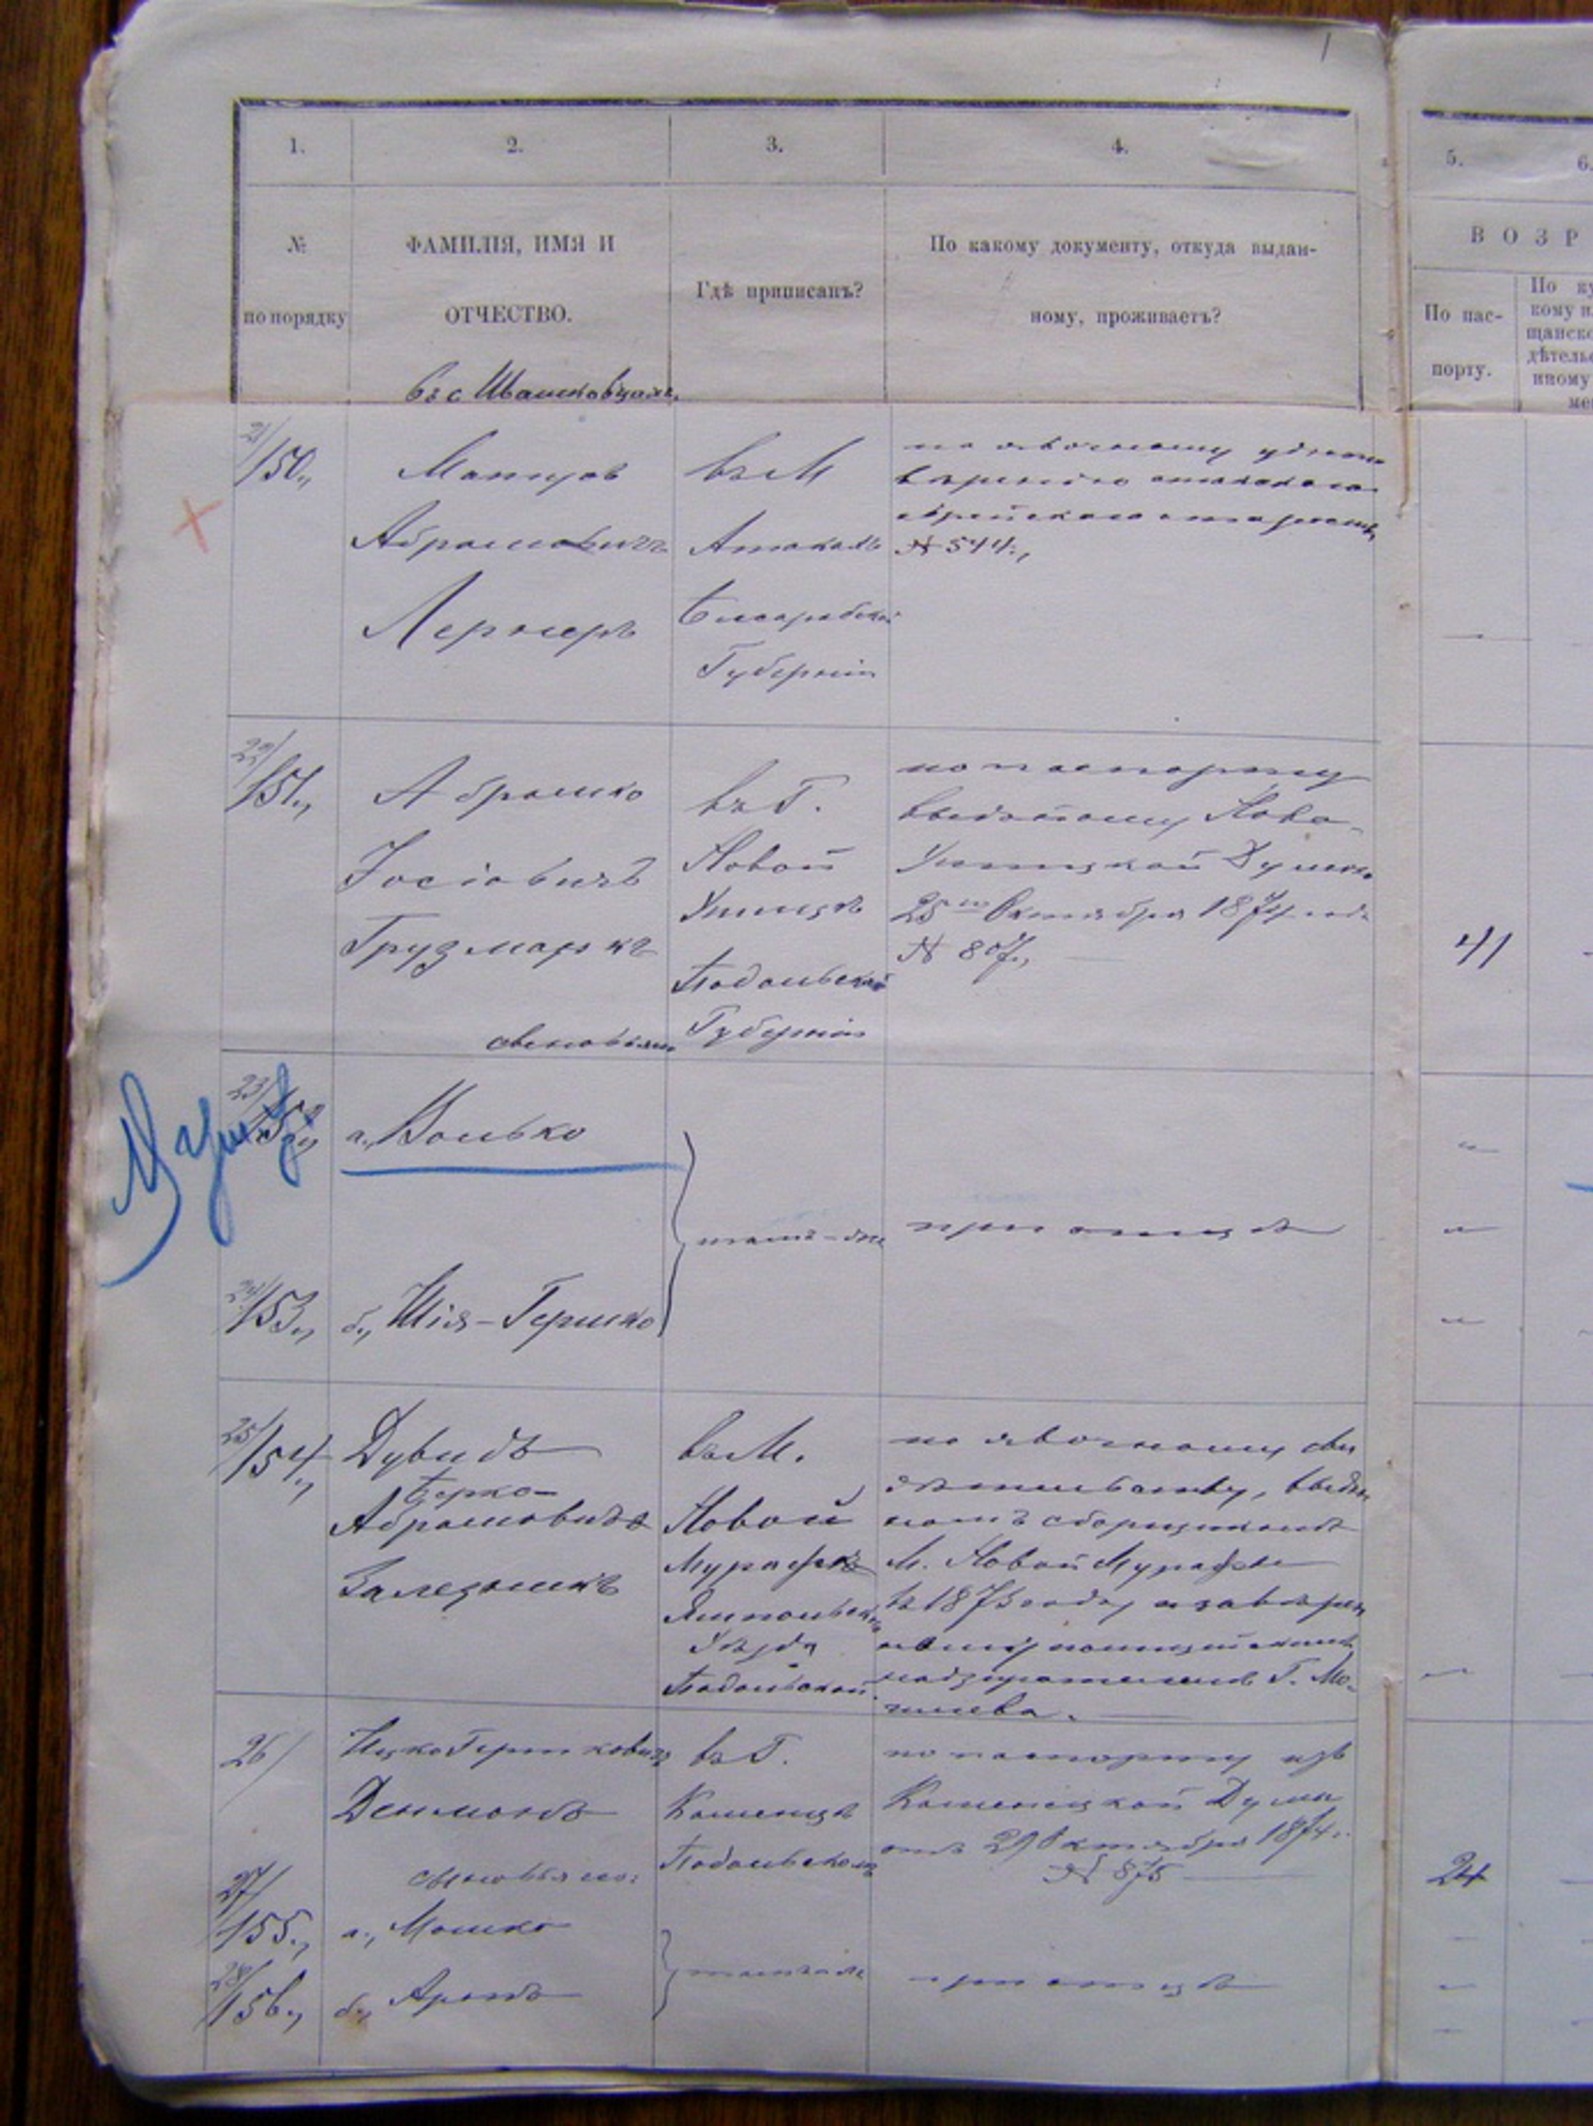 1
1.
2.
3.
4.
5.
6.
№
по порядку
ФАМИЛІЯ, ИМЯ И
ОТЧЕСТВО.
Гдѣ приписанъ?
По какому документу, откуда выдан-
ному, проживаетъ?
В О З Р
По пас-
порту.
По ку
кому и
щанско
дѣтель
иному
ме
въ с
21/
150.,
въ М
Абрамовичъ
Атакахъ
Лернеръ
Бессарабской
Губерніи
по явочному
еврейскаго
№ 544.,
22/
151.,
Абрамко
Іосіовичъ
Грузмаркъ
сыновья
въ Г.
Новой
Ушицѣ
Подольской
Губерніи
по паспорту
выданному Ново-
Ушицкой Думою
25го Октября 1874 года
№ 807.,
41
23/
152.,
а., Волько
тамъ-же
при отцѣ
24/
153.,
б., Шія-Гершко
25/
154.,
Дувидъ
Берко-
Абрамовичъ
въ М.
Новой
Мурафѣ
Ямпольскаго
Уѣзда
Подольской
по явочному сви
дѣтельству, выдан
нымъ сборщикомъ
М. Новой Мурафы
въ 1873 году
полицейскимъ
надзирателемъ Г. Мо-
гилева.
26/
Ицко Гершковичъ
сыновья его:
въ Г.
Каменцѣ
Подольскомъ
по паспорту изъ
Каменецкой Думы
отъ 29 Октября 1874 г.
№ 875
24
27/
155.,
а., Мошко
тамъ же
при отцѣ
28/
156.,
б., Аронъ